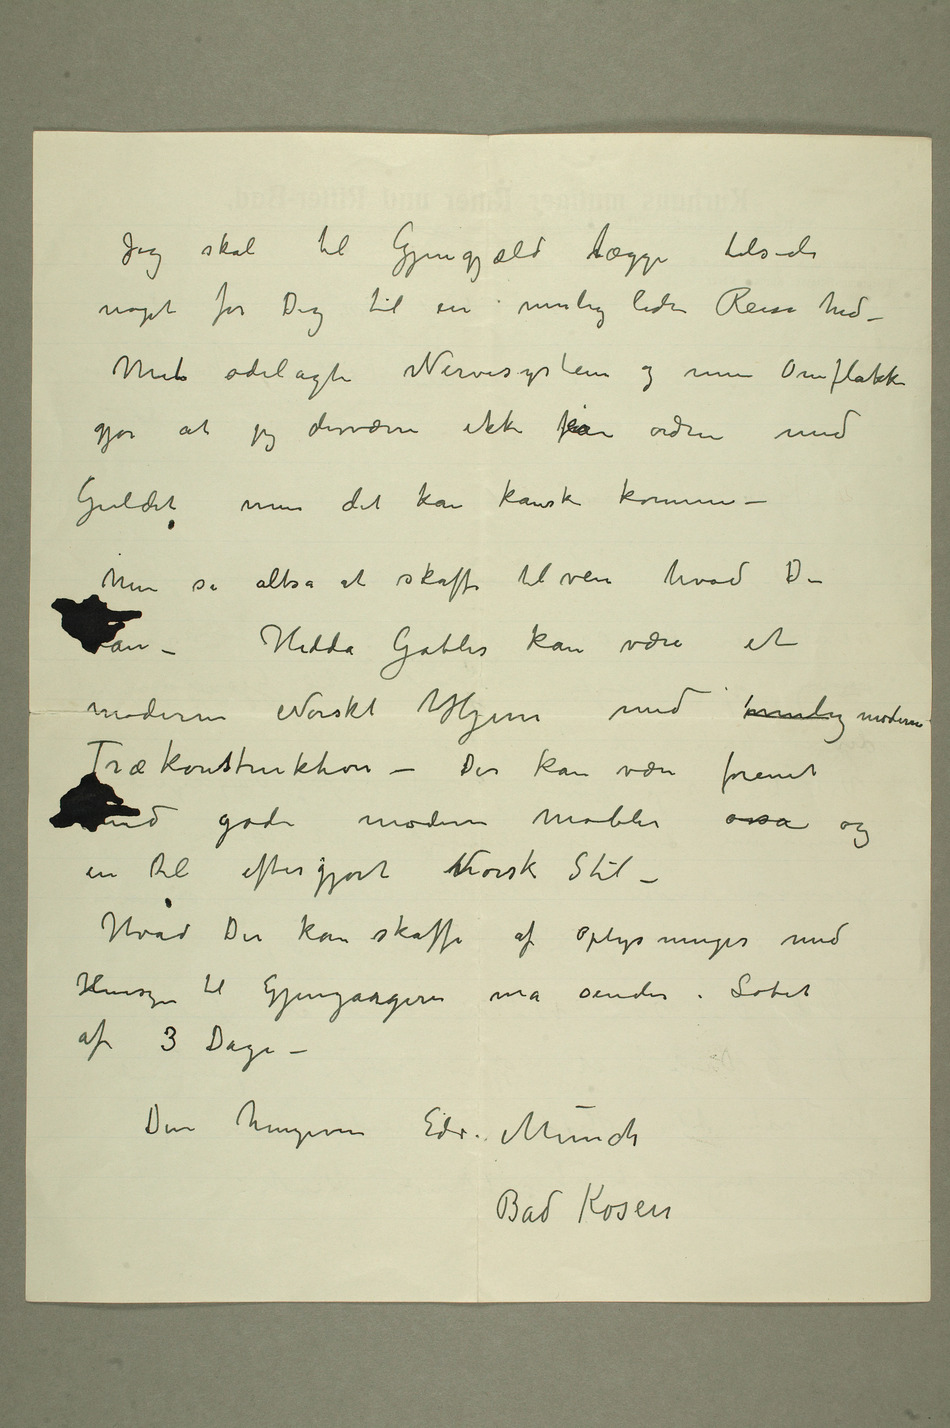 Jeg skal til Gjengjæld lægge tilside
noget for Dig til en mulig liden Reise hid –
Mit ødelagte Nervesystem og min Omflakken
gjør at jeg desværre ikke kan ordne med
Guldet men det kan kanske komme –
Men så altså at skaffe tilveie hvad Du
kan – Hedda Gabler kan være et
moderne Norskt Hjem med mulig moderne
Trækonstruktion – Der kan være forenet
med gode moderne møbler også og
en til eftergjort Norsk Stil –
Hvad Der kan skaffe af oplysninger med
Hensyn til Gjengangere må sendes i Løbet
af 3 Dage –
Din hengivne Edv. Munch
Bad Kosen